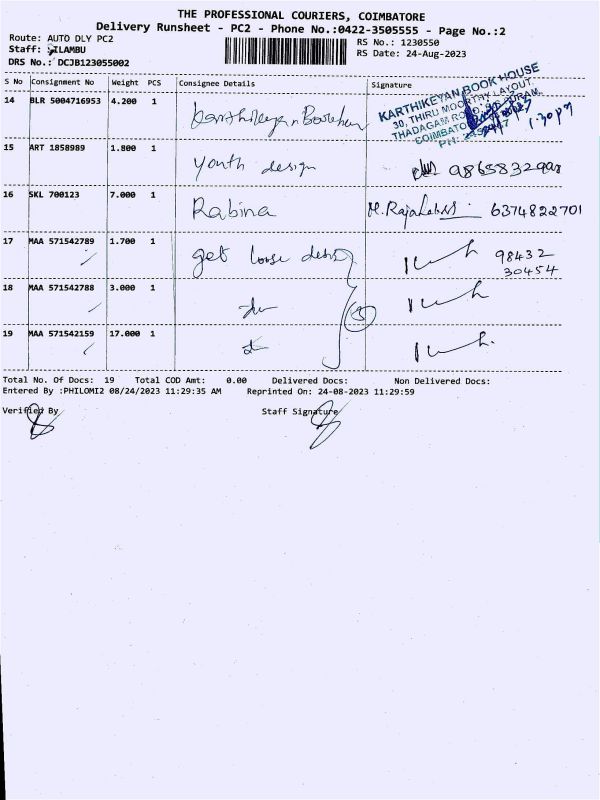 THE PROFESSIONAL COURIERS, COIMBATORE
Delivery Runsheet - PC2 - Phone No.:0422-3505555 - Page No.:2
Route: AUTO DLY PC2
RS No.: 1230550
Staff: SILAMBU
RS Date: 24-Aug-2023
DRS No.: DCJB123055002
S No Consignment No Weight PCS Consignee Details Signature
14 BLR 5004716953 4.200 1
KARTHIKEYAN BOOK HOUSE
30, THIRU MOORTHY LAYOUT
THADAGAM ROAD,
COIMBATO
1.30 pm
15 ART 1858989 1.800 1 Youth design 9865832998
16 SKL 700123 7.000 1 Rabina 6374822701
17 MAA 571542789 1.700 1 get loose 98432
30454
18 MAA 571542788 3.000 1
19 MAA 571542159 17.000 1
Total No. Of Docs: 19 Total COD Amt: 0.00 Delivered Docs: Non Delivered Docs:
Entered By :PHILOMI2 08/24/2023 11:29:35 AM Reprinted On: 24-08-2023 11:29:59
Verified By Staff Signature